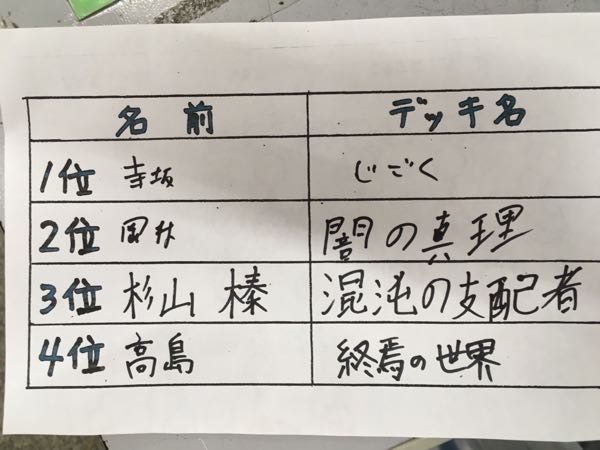 名前 デッキ名
1位 寺坂 じごく
2位 岡林 闇の真理
3位 杉山 榛 混沌の支配者
4位 高島 終焉の世界